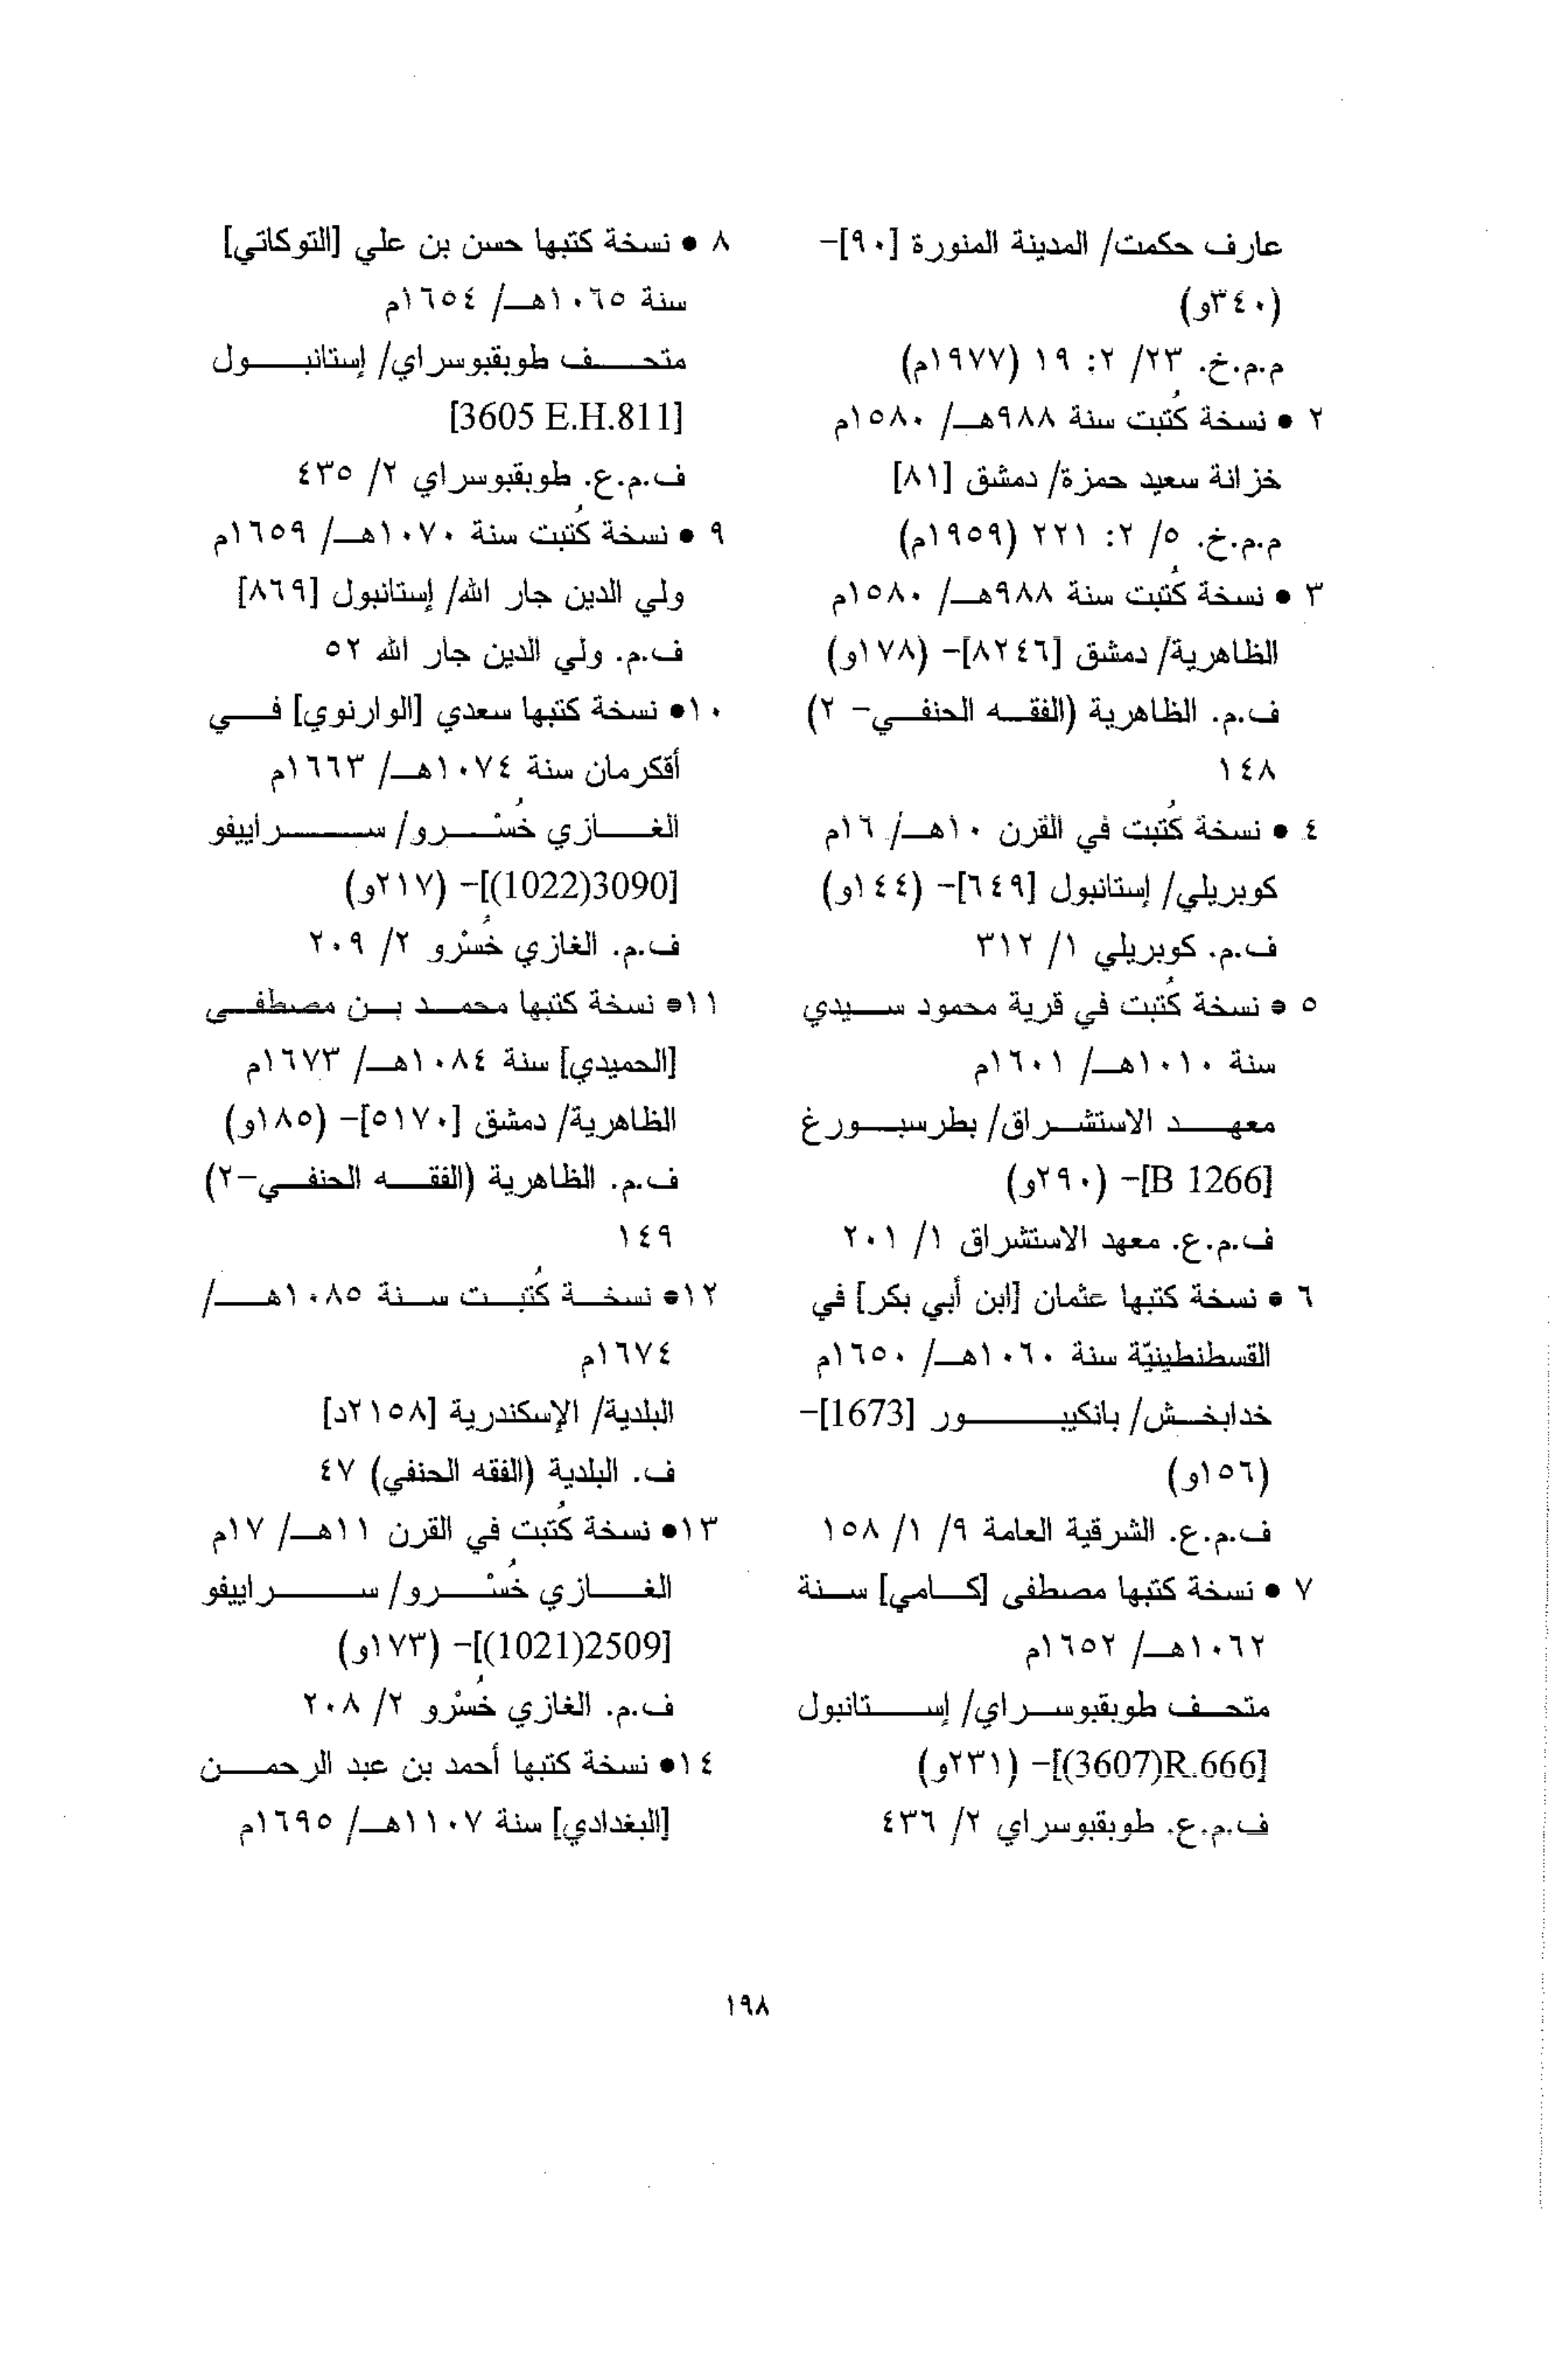 عارف حكمت/ المدينة المنورة [٩٠]-
(٣٤٠و)
م.م.خ. ٢٣/ ٢: ١٩ (١٩٧٧م)
٢ • نسخة كُتبت سنة ٩٨٨هـ/ ١٥٨٠م
خزانة سعيد حمزة/ دمشق [٨١]
م.م.خ. ٥/ ٢: ٢٢١ (١٩٥٩م)
٣ • نسخة كُتبت سنة ٩٨٨هـ/ ١٥٨٠م
الظاهرية/ دمشق [٨٢٤٦]- (١٧٨و)
ف.م. الظاهرية (الفقه الحنفي- ٢)
١٤٨
٤ • نسخة كُتبت في القرن ١٠هـ/ ١٦م
كوبريلي/ إستانبول [٦٤٩]- (١٤٤و)
ف.م. كوبريلي ١/ ٣١٢
٥ • نسخة كُتبت في قرية محمود سيدي
سنة ١٠١٠هـ/ ١٦٠١م
معهد الاستشراق/ بطرسبورغ
[B 1266]- (٢٩٠و)
ف.م.ع. معهد الاستشراق ١/ ٢٠١
٦ • نسخة كتبها عثمان [ابن أبي بكر] في
القسطنطينيّة سنة ١٠٦٠هـ/ ١٦٥٠م
خدابخش/ بانكيبور [1673]-
(١٥٦و)
ف.م.ع. الشرقية العامة ٩/ ١/ ١٥٨
٧ • نسخة كتبها مصطفى [كامي] سنة
١٠٦٢هـ/ ١٦٥٢م
متحف طوبقبوسراي/ إستانبول
[3607)R.666)]- (٢٣١و)
ف.م.ع. طوبقبوسراي ٢/ ٤٣٦
٨ • نسخة كتبها حسن بن علي [التوكاتي]
سنة ١٠٦٥هـ/ ١٦٥٤م
متحف طوبقبوسراي/ إستانبول
[3605 E.H.811]
ف.م.ع. طوبقبوسراي ٢/ ٤٣٥
٩ • نسخة كُتبت سنة ١٠٧٠هـ/ ١٦٥٩م
ولي الدين جار الله/ إستانبول [٨٦٩]
ف.م. ولي الدين جار الله ٥٢
١٠• نسخة كتبها سعدي [الوارنوي] في
أقكرمان سنة ١٠٧٤هـ/ ١٦٦٣م
الغازي خُسْرو/ سراييفو
[(1022)3090]- (٢١٧و)
ف.م. الغازي خُسْرو ٢/ ٢٠٩
١١• نسخة كتبها محمد بن مصطفى
[الحميدي] سنة ١٠٨٤هـ/ ١٦٧٣م
الظاهرية/ دمشق [٥١٧٠]- (١٨٥و)
ف.م. الظاهرية (الفقه الحنفي-٢)
١٤٩
١٢• نسخة كُتبت سنة ١٠٨٥هـ/
١٦٧٤م
البلدية/ الإسكندرية [٢١٥٨د]
ف. البلدية (الفقه الحنفي) ٤٧
١٣• نسخة كُتبت في القرن ١١هـ/ ١٧م
الغازي خُسْرو/ سراييفو
[(1021)2509]- (١٧٣و)
ف.م. الغازي خُسْرو ٢/ ٢٠٨
١٤• نسخة كتبها أحمد بن عبد الرحمن
[البغدادي] سنة ١١٠٧هـ/ ١٦٩٥م
١٩٨